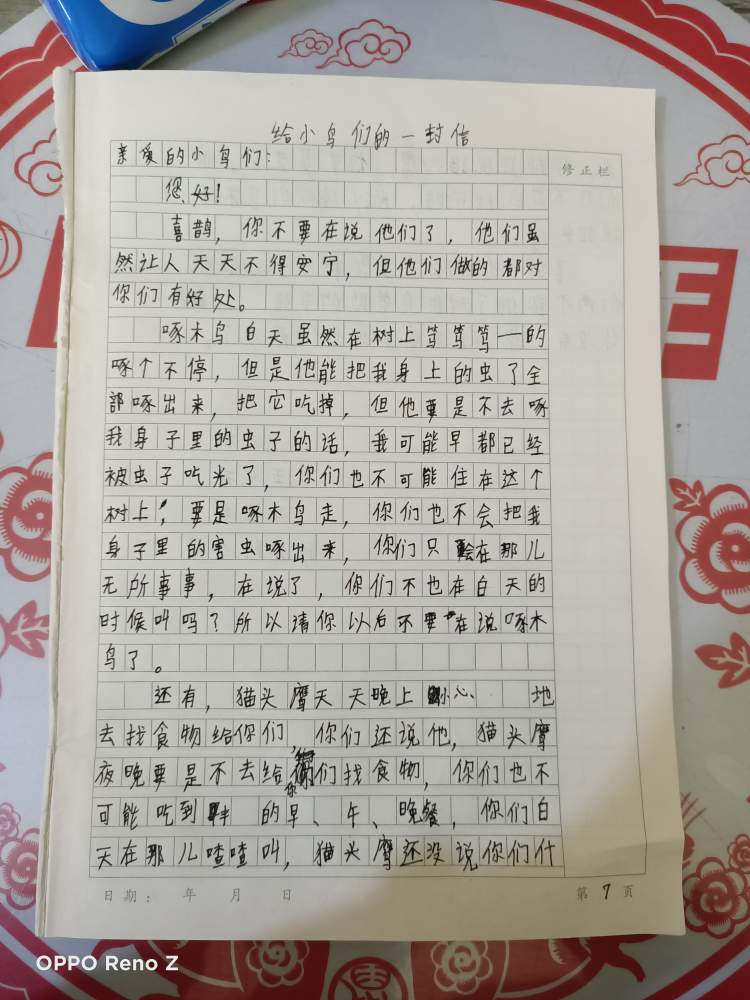 给小鸟们的一封信
亲爱的小鸟们：
修正栏
您好！
喜鹊，你不要在说他们了，他们虽
然让人天天不得安宁，但他们做的都对
你们有好处。
啄木鸟白天虽然在树上笃笃笃一的
啄个不停，但是他能把我身上的虫了全
部啄出来，把它吃掉，但他要是不去啄
我身子里的虫子的话，我可能早都已经
被虫子吃光了，你们也不可能住在这个
树上，要是啄木鸟走，你们也不会把我
身子里的害虫啄出来，你们只会在那儿
无所事事，在说了，你们不也在白天的
时候叫吗？所以请你以后不要在说啄木
鸟了。
还有，猫头鹰天天晚上小心地
去找食物给你们，你们还说他，猫头鹰
夜晚要是不去给你们找食物，你们也不
可能吃到的早、午、晚餐，你们白
天在那儿喳喳叫，猫头鹰还没说你们什
日期： 年 月 日
第 7 页
OPPO Reno Z